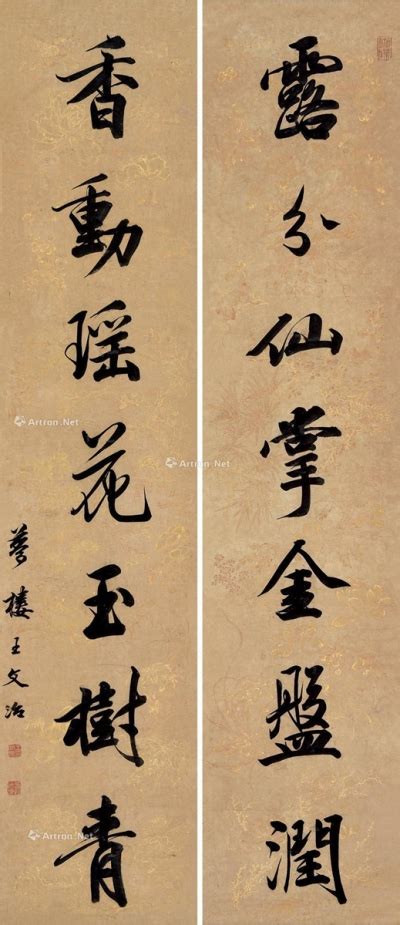 露分仙掌金盤潤
香動瑶花玉樹青
夢樓王文治
Artron.Net
Artron.Net
Artron.Net